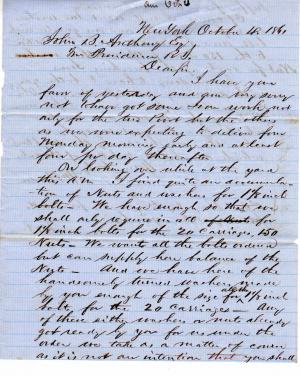 Ans Oct 4
New York October 4, 1861
John B. Anthony Esq
Providence R.I.
Dear Sir
I have your
favor of yesterday and am very sorry
not to have got some Iron work, not
only for the but the others
as we were expecting to deliver four
Monday morning early and at least
four per day thereafter
On looking over while at the yard
this A.M. I find quite an accumula-
tion of Nuts and washers for 1 1/8 inch
bolts - We have enough so that we
shall only require in all for
1 1/8 inch bolts for the 20 Carriages, 150
Nuts - We want all the bolts ordered
but can supply here balance of the
Nuts - And we have here of the
handsomely turned washers made
by you enough of the size for 1 1/8 inch
bolts for the 20 Carriages - Any
of these either washers or nuts already
got ready by you for us under the
order we take as a matter of course
as it is not an intention that you shall